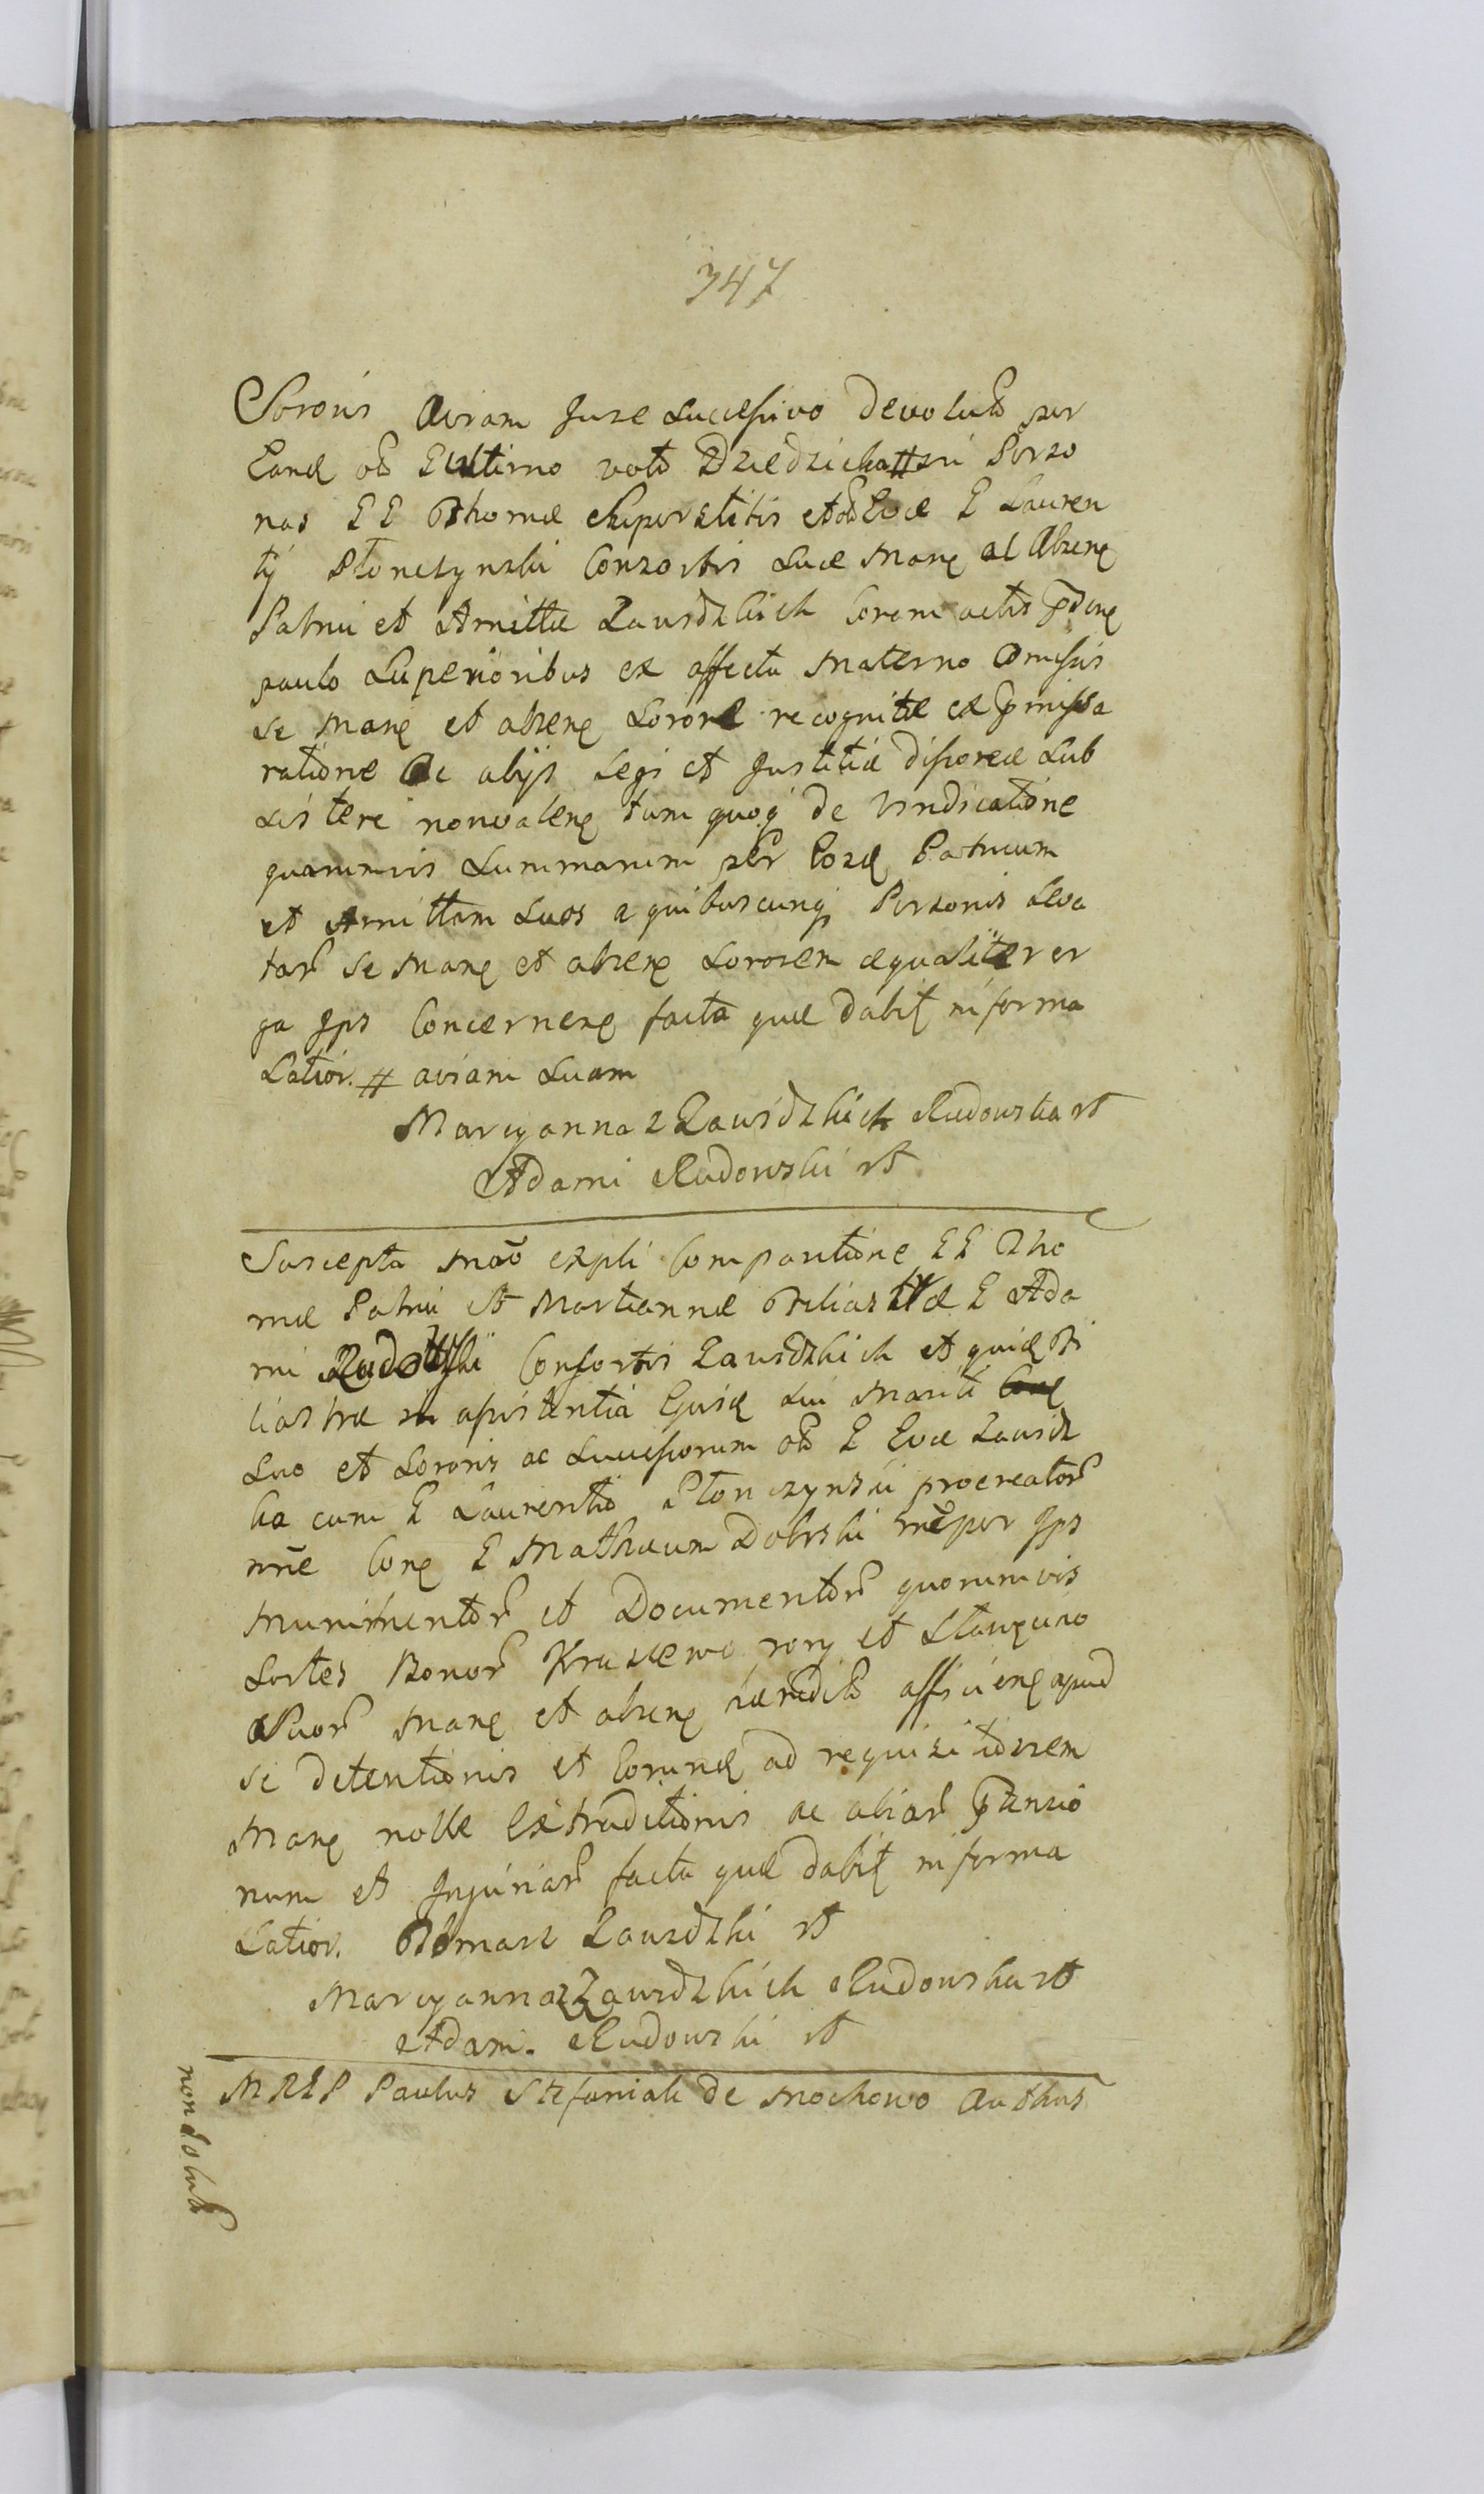 347
Sororis Aviam Jure Successivo devolut per
Eand ol E ultimo voto Dziedzicka # sui Perso
nas EE Thomæ Superstitis et ol Evæ E Lauren
tÿ Płonczynski Consortis suæ Mane al Absene
Patrui et Amittæ Zawidzkich coram actis præsene
paulo Superioribus ex affectu Materno Omissis
se Mane et absene Sorore recognitæ ex præmissa
ratione Ac alijs Legi et Justitiæ disporeæ Sub
sistere nonvalene tum quoq de Vindicatione
quarumvis Summarum per Eosd Patruum
et Amittam Suos a quibuscunq Personis leva
tar se Mane et absene Sororem æqualiter er
ga Jps Concernene facta quæ dabit in forma
Latior. # aviam Suam
Maryanna z Zawidzkich Rudowska rt
Adam Rudowski rt
Suscepta Mao expli Comparitione EE Tho
mæ Patrui et Marianne Filiastræ E Ada
mi Rudowski Consortis Zawidzkich et quid Fi
liastræ in assistentia Ejusd sui Mariti
Suo et Sororis ac Successorum ol E Evæ Zawidz
ka cum E Laurentio Płonczynski procreator
nne Cone E Mathæum Dobrski nne per Jps
Munimentor et Documentor quorumvis
Sortes Bonor Kruszewo rory et Stawgino
Suor Mane et absene hæredit afficiene apud
se detentionis et Eorund ad requisitionem
Mane nolle Extraditionis ac aliar prætensio
num et Injuriar facta quæ dabit in forma
Latior. Tomasz Zawidzki rt
Maryanna z Zawidzkich Rudowska rt
Adam. Rudowski rt
MREP Paulus Stefaniak de Mochowo Authus
non solut